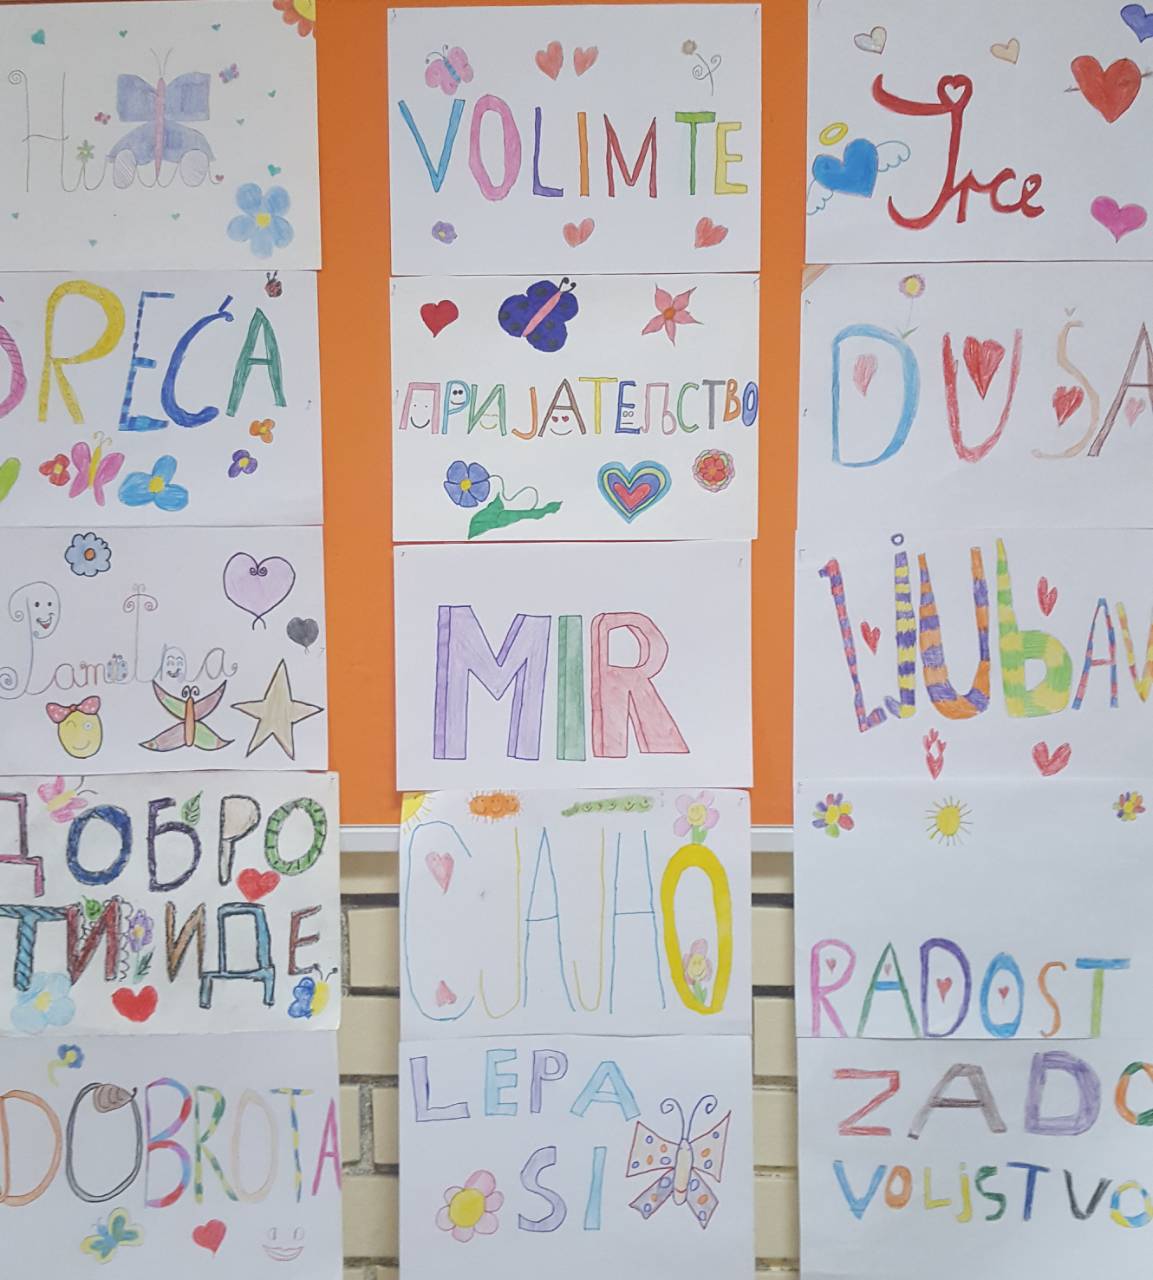 VOLIM TE
Srce
SREĆA
ПРИЈАТЕЉСТВО
DUŠA
Pametna
MIR
LjUbAV
ДОБРО
ТИ ИДЕ
СЈАЈНО
RADOST
DOBROTA
LEPA
SI
ZADO
VOLjSTVO